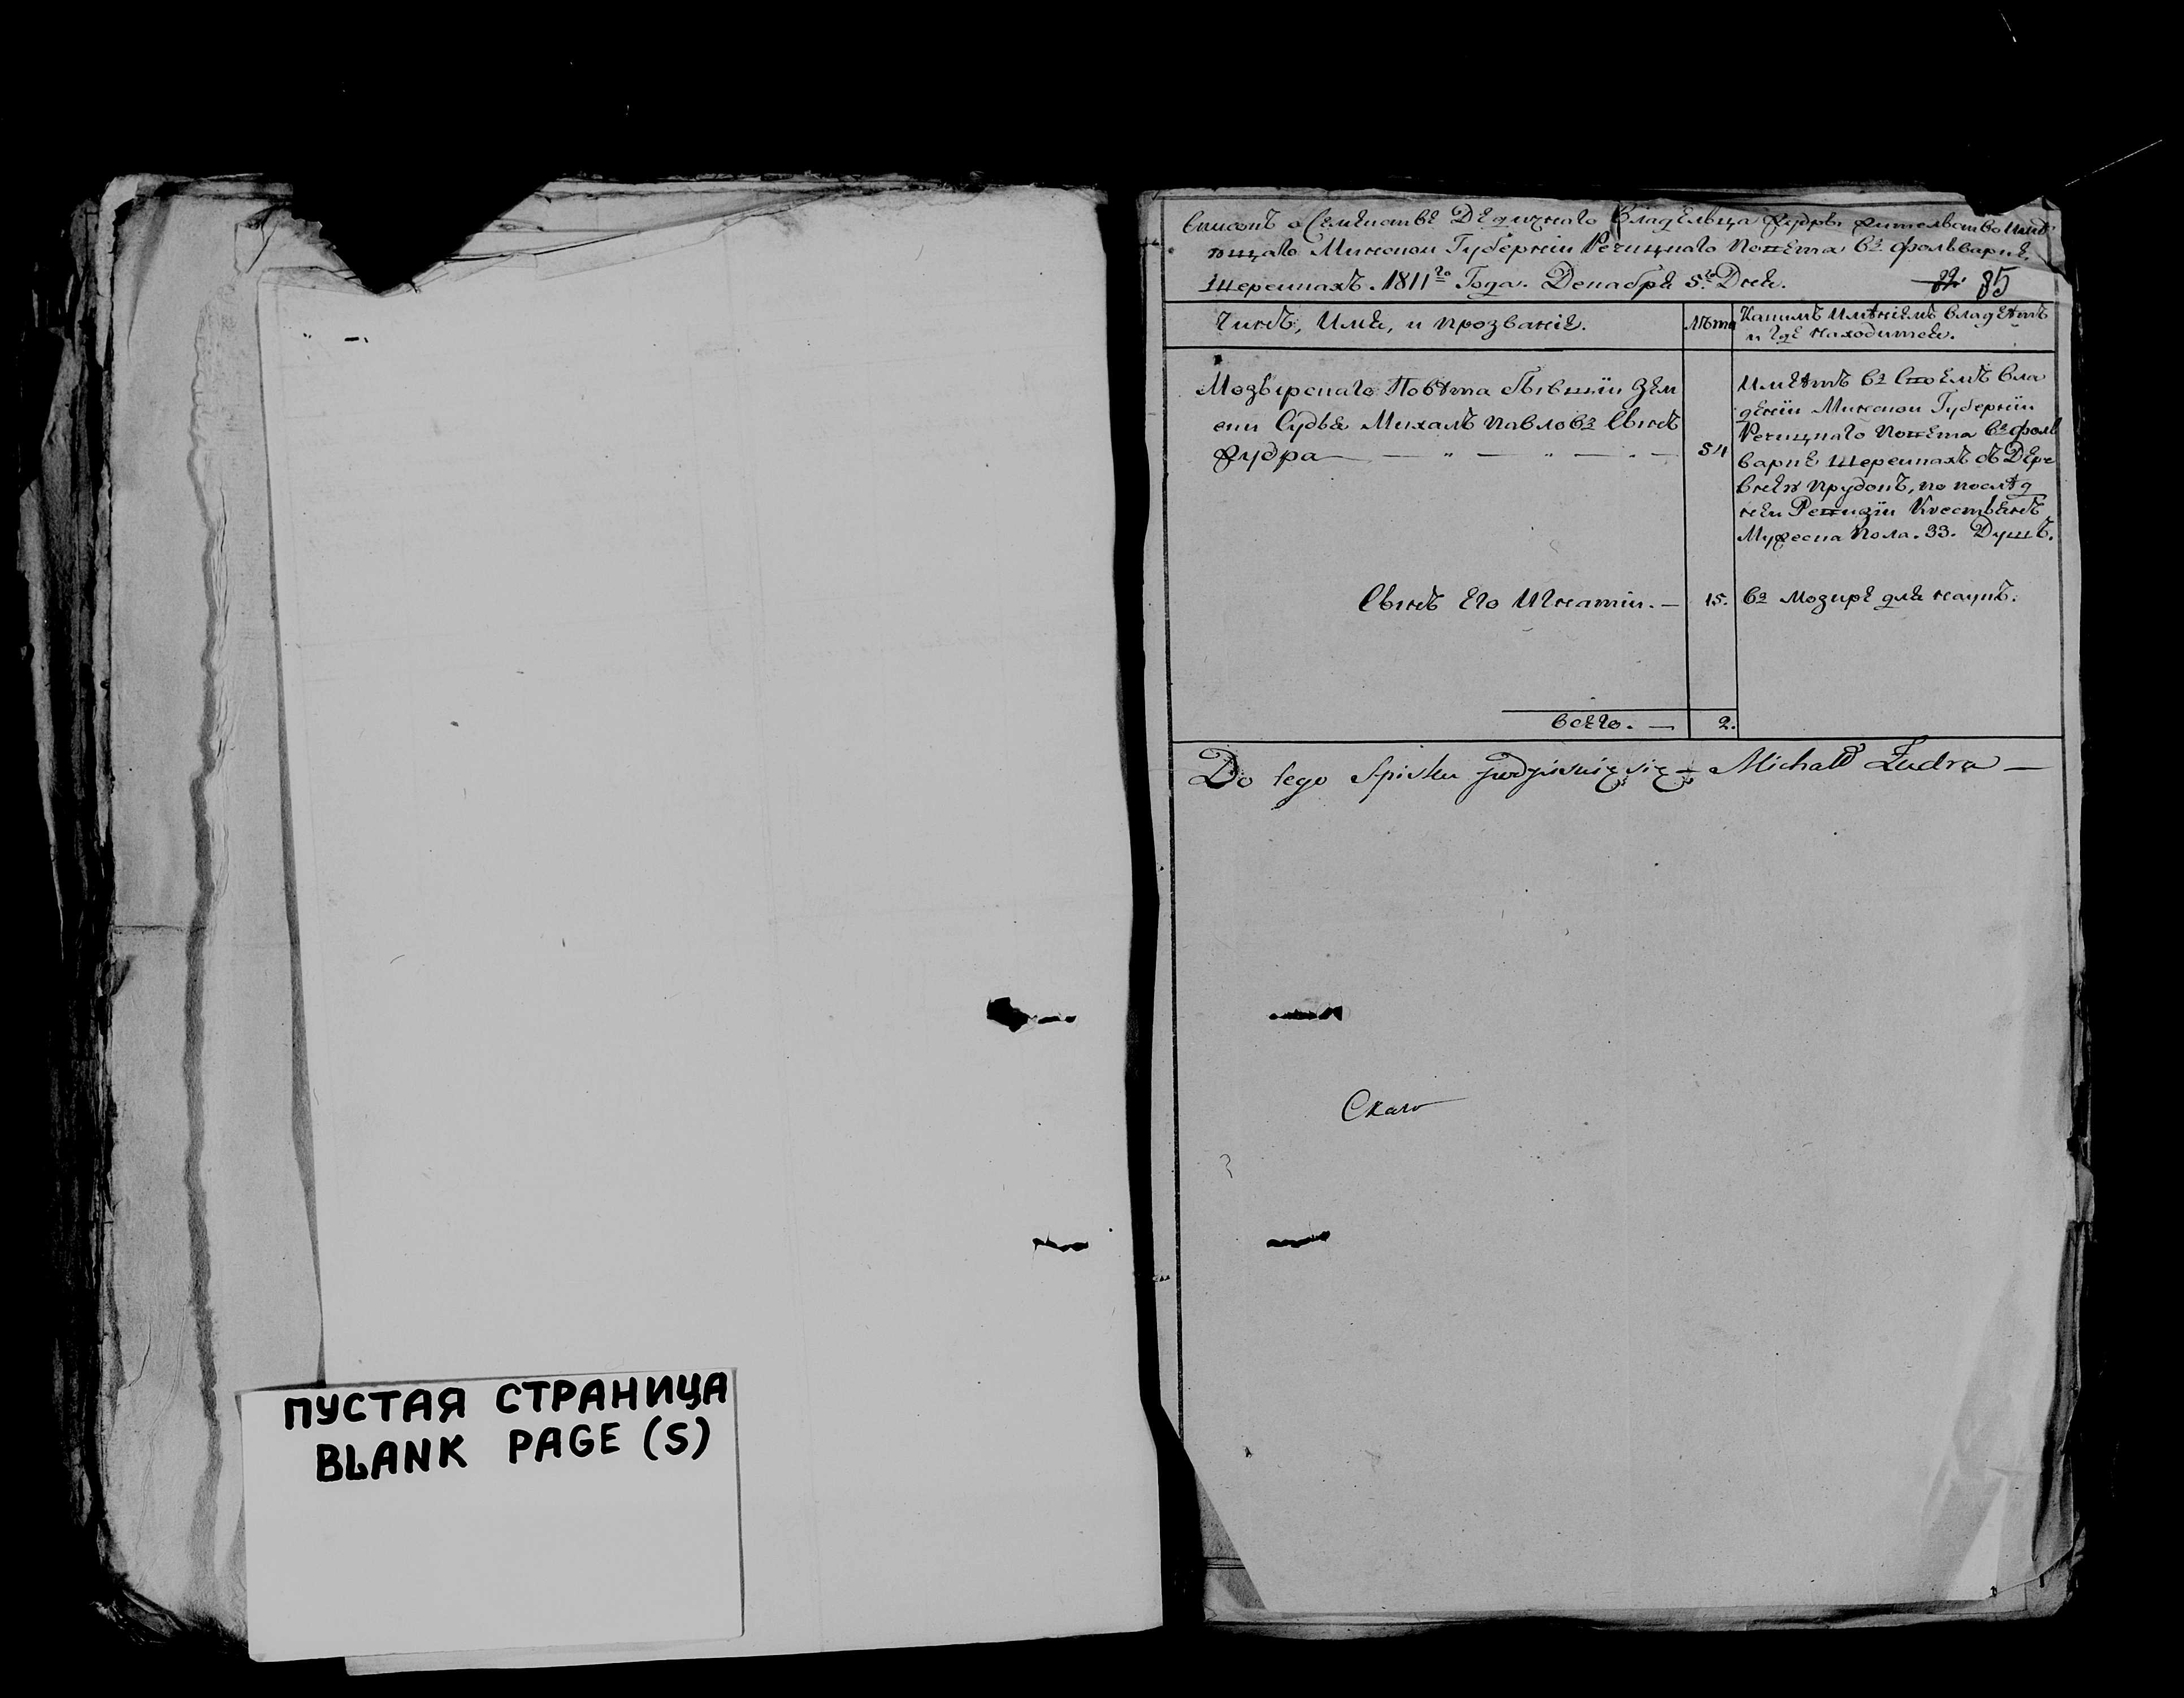 ПУСТАЯ СТРАНИЦА
BLANK PAGE (S)
Списокъ о Семействе Дедичнаго Владельца Жудры жительство имѣ
ющаго Минской Губерніи Речицкаго Повета въ фольварке
Шерейкахъ. 1811го Года. Декабря 5го Дня.
35
Чинъ, Имя, и прозваніе.
Лѣта
Какимъ Имѣніемъ владѣетъ
и где находится.
Мозырскаго Повѣта бывшій Зем
ски Судья Михалъ Павловъ Сынъ
Жудра
54
Имѣетъ въ своемъ вла
деніи Минской Губерніи
Речицкаго Повета въ фоль
варке Шерейкахъ съ Дере
внею Прудокъ, по послѣд
ней Ревизіи Крестьянъ
Мужеска Пола. 33. Душъ.
Сынъ Его Игнатій. —
15.
въ Мозире для наукъ.
всего. —
2.
Do tego Spisku podpisuię się — Michał Żudra —